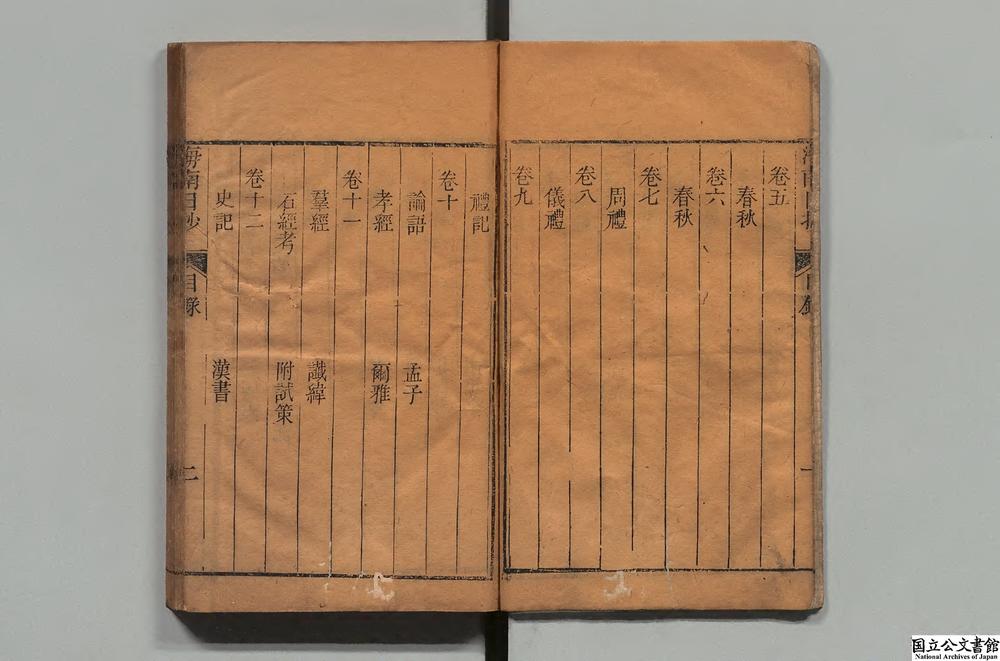 卷五
春秋
卷六
春秋
卷七
周禮
卷八
儀禮
卷九
禮記
卷十
論語 孟子
孝經 爾雅
卷十一
羣經 讖緯
石經考 附試策
卷十二
史記 漢書
海南日抄 目錄 二
国立公文書館
National Archives of Japan